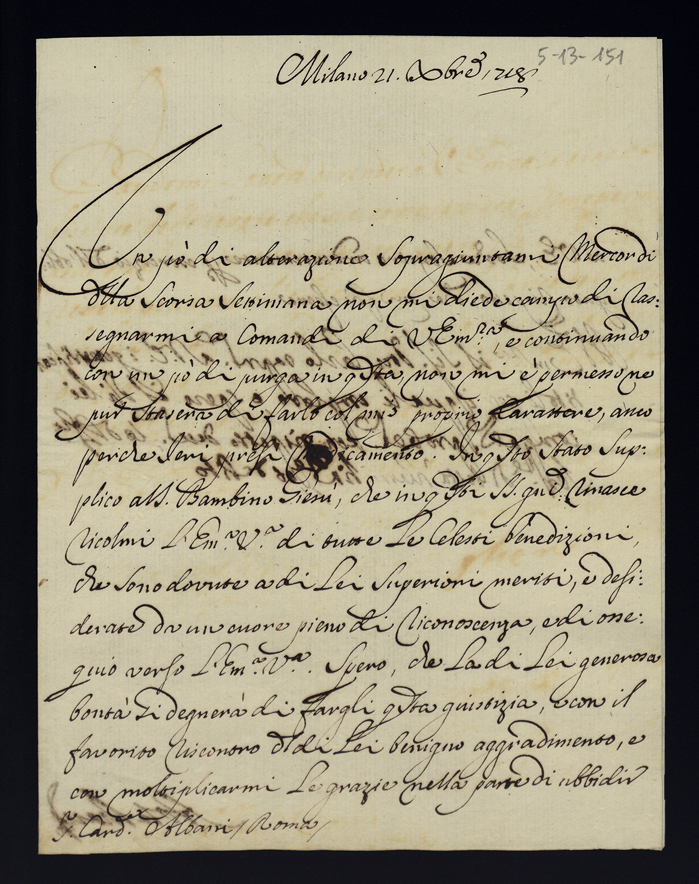 5-13-151
Milano 21. Xbre 1718
Un pò di alterazione sopragiuntami Mercordi
della scorsa Settimana non mi diede campo di ras=
segnarmi a Comandi di V Em.ª, e continuando
con un pò di purga in qsta, non mi è permesso ne
pur stasera di farlo col mio proprio Carattere, anco
perche Ieri presi Medicamento. In qsto stato sup=
plico al S. Bambino Giesù, che in qste SS. gnte. rinasce
ricolmi L'Em.ª V.ª di tutte Le Celesti benedizioni,
che sono dovute a di Lei superiori meriti, e desi=
derate da un cuore pieno di riconoscenza, e di osse=
quio verso L'Em.ª V.ª. Spero, che La di Lei generosa
bontà si degnerà di fargli qsta giustizia, e con il
favorito riscontro del di Lei benigno aggradimento, e
con moltiplicarmi Le grazie nella parte di ubbidir
S.r Card. Albani / Roma /